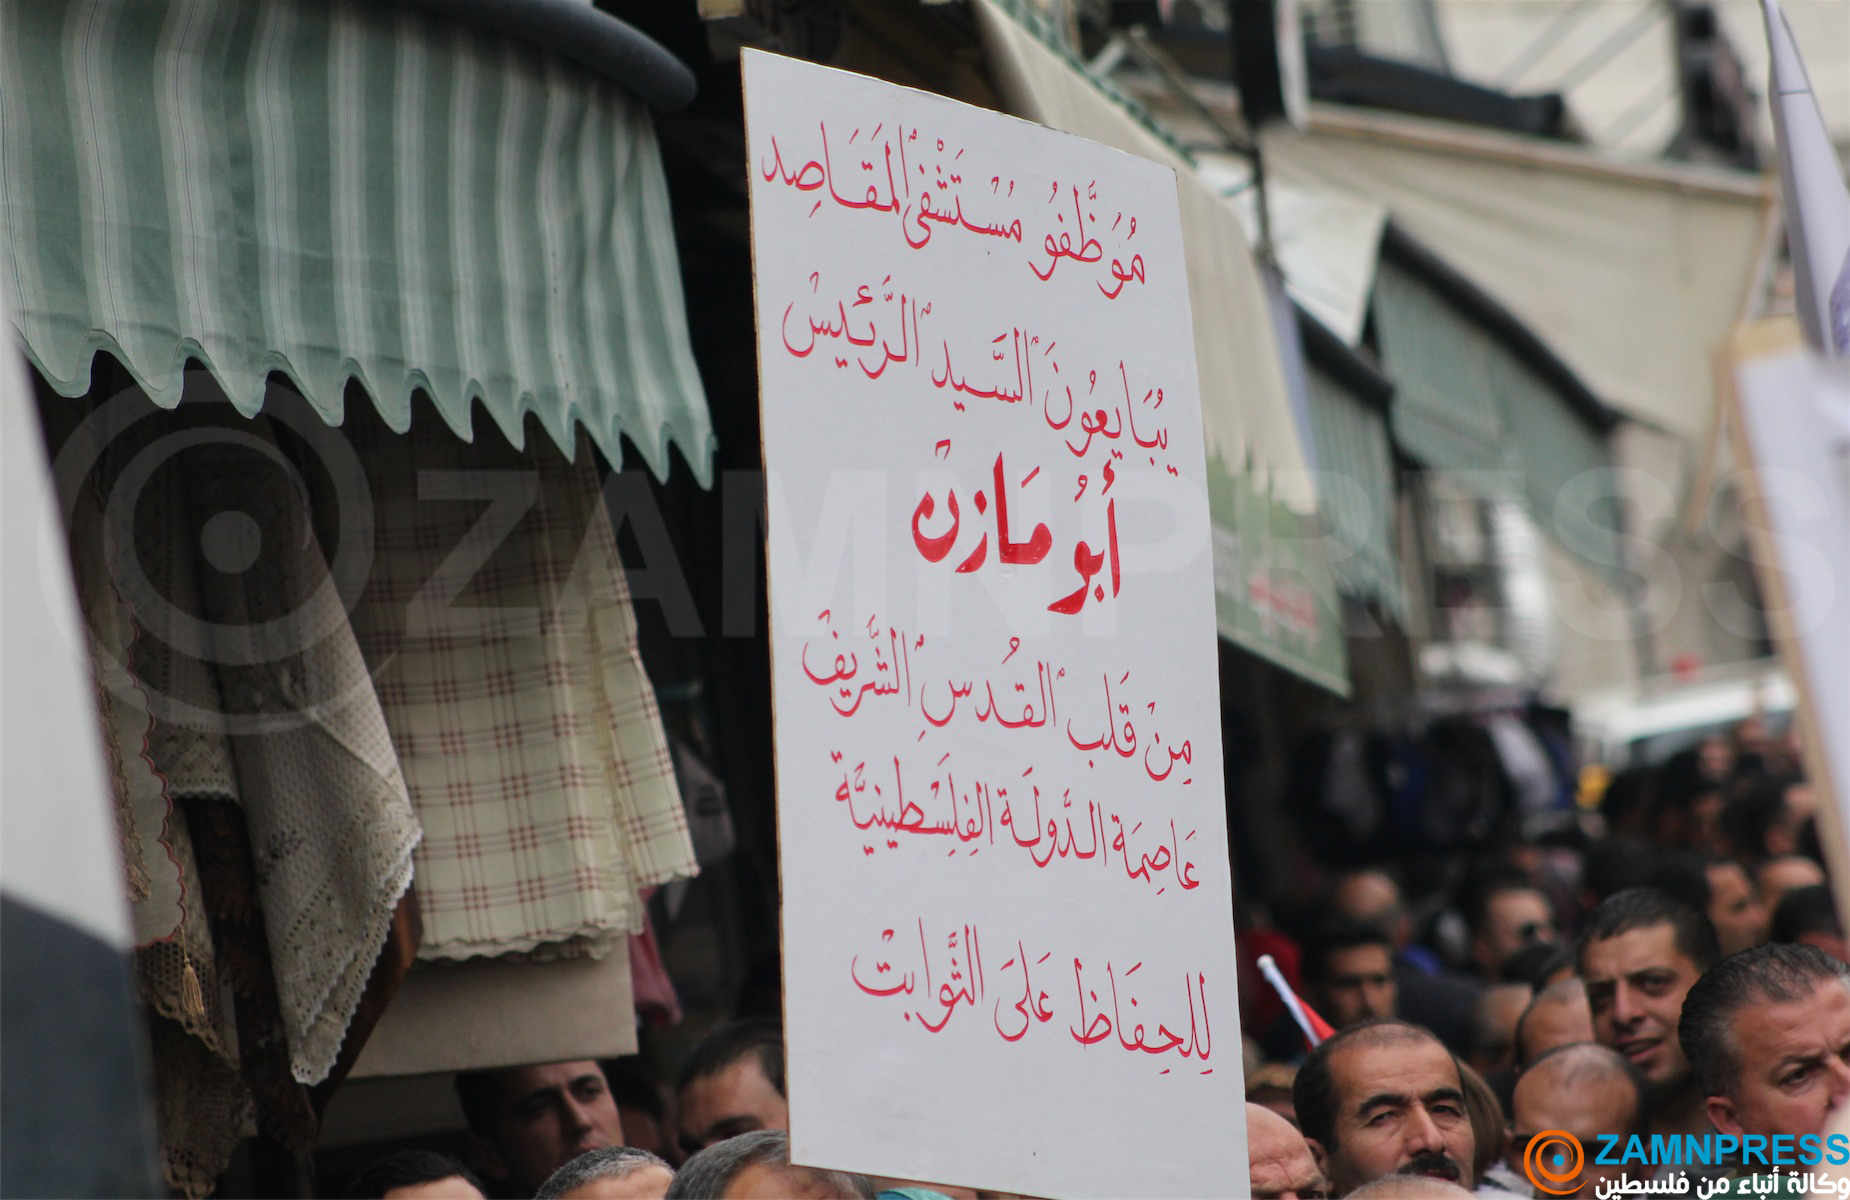 مُوَظَّفُو مُسْتَشْفَى الْمَقَاصِد
يُبَايِعُونَ السَّيد الرَّئِيسْ
أَبُو مَازِنْ
مِنْ قَلب الْقُدسِ الشَّرِيفْ
عَاصِمَة الدَّولَة الفِلِسْطِينِيَّة
لِلحِفَاظ عَلَى الثَّوابتْ
ZAMNPRESS
ZAMNPRESS
وكالة أنباء من فلسطين